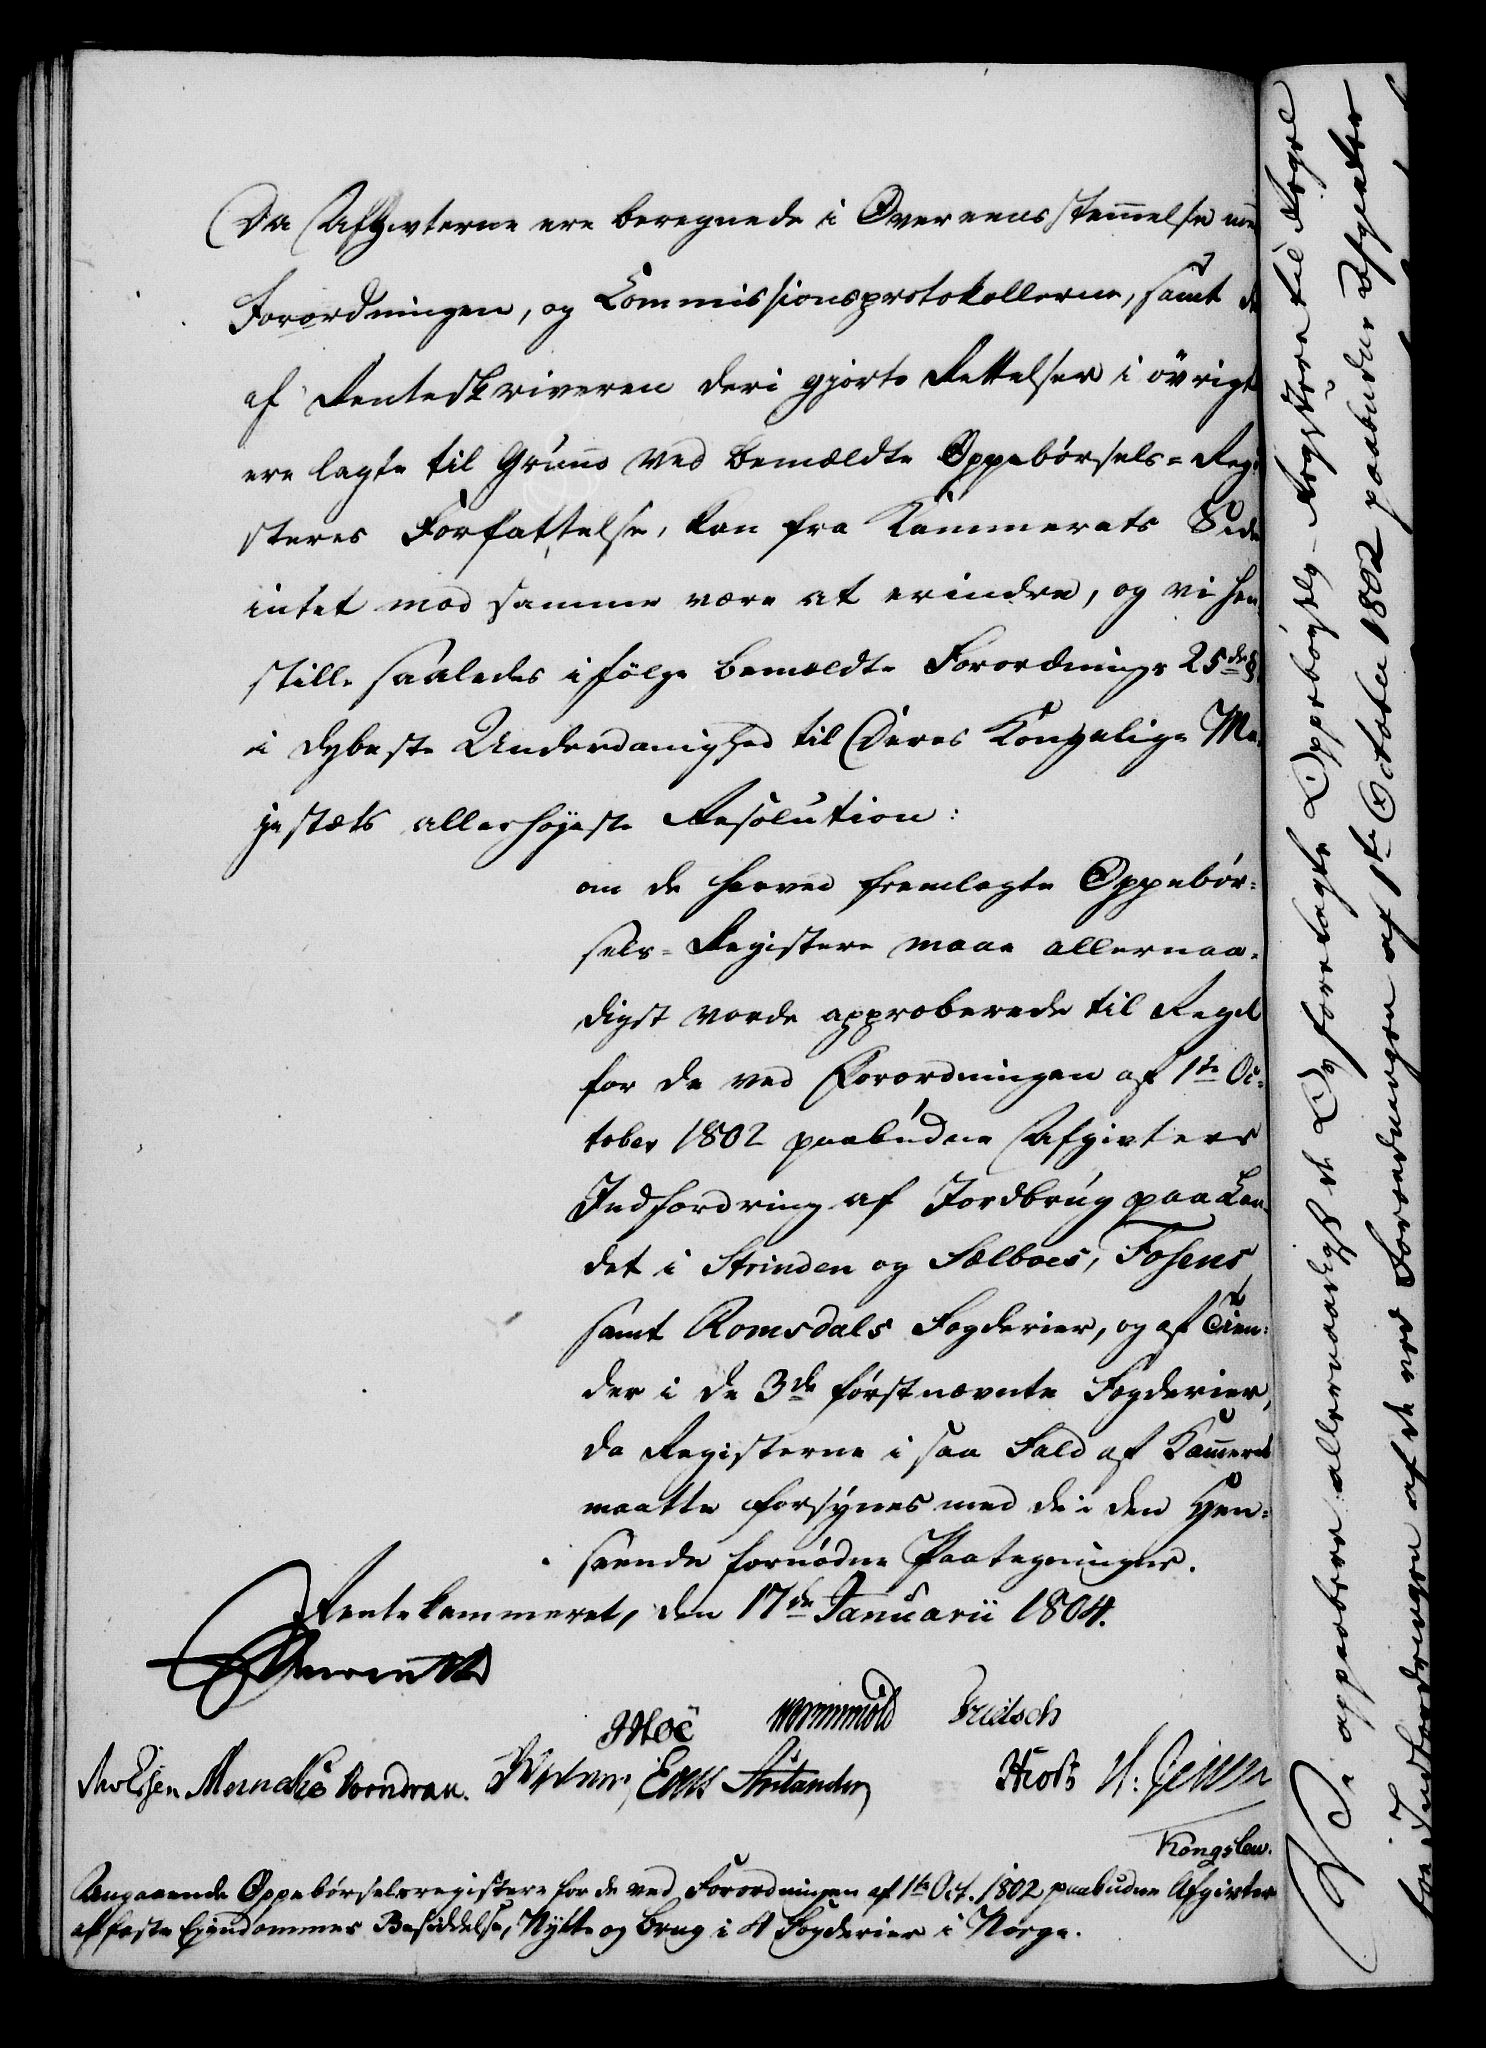 Da Afgivterne ere beregnede i Overeensstemmelse med
Forordningen, og Commissionsprotokollerne, samt de
af Renteskriveren deri gjorte Rettelser i övrigt
ere lagte til Grund ved bemældte Oppebørsels=Regi
steres Forfattelse, kan fra Kammerets Side
intet mod samme være at erindre, og vi hen
stille saaledes ifölge bemældte Forordnings 25de §
i dybeste Underdanighed til Deres Kongelige Ma
jestæts allerhøjeste Resolution:
om de herved fremlagte Oppebør=
sels=Registere maae allernaa=
digst vorde approberede til Regel
for de ved Forordningen af 1te Oc=
tober 1802 paabudne Afgivters
Indfordring af Jordbrug paa Lan
det i Strinden og Sælboes, Fosens,
samt Romsdals Fogderier, og af Tien=
der i de 3de förstnævnte Fogderier,
da Registerne i saa Fald af Kammeret
maatte forsynes med de i den Hen=
seende fornödne Paategninger.
Rentekammeret, den 17de Januarii 1804.
Wormskiold
Meincke Vorndran.
H: Jensen
Kongslew.
Angaaende Oppebørselsregistere for de ved Forordningen af 1te Oct. 1802 paabudne Afgivter
af faste Ejendommes Besiddelse, Nytte og Brug i 4 Fogderier i Norge.
Vi approbere allernaadigst de foretagte Oppebørsels-Registere til Regel
for Indfordringen af de ved Forordningen af 1te October 1802 paabudne Afgivter